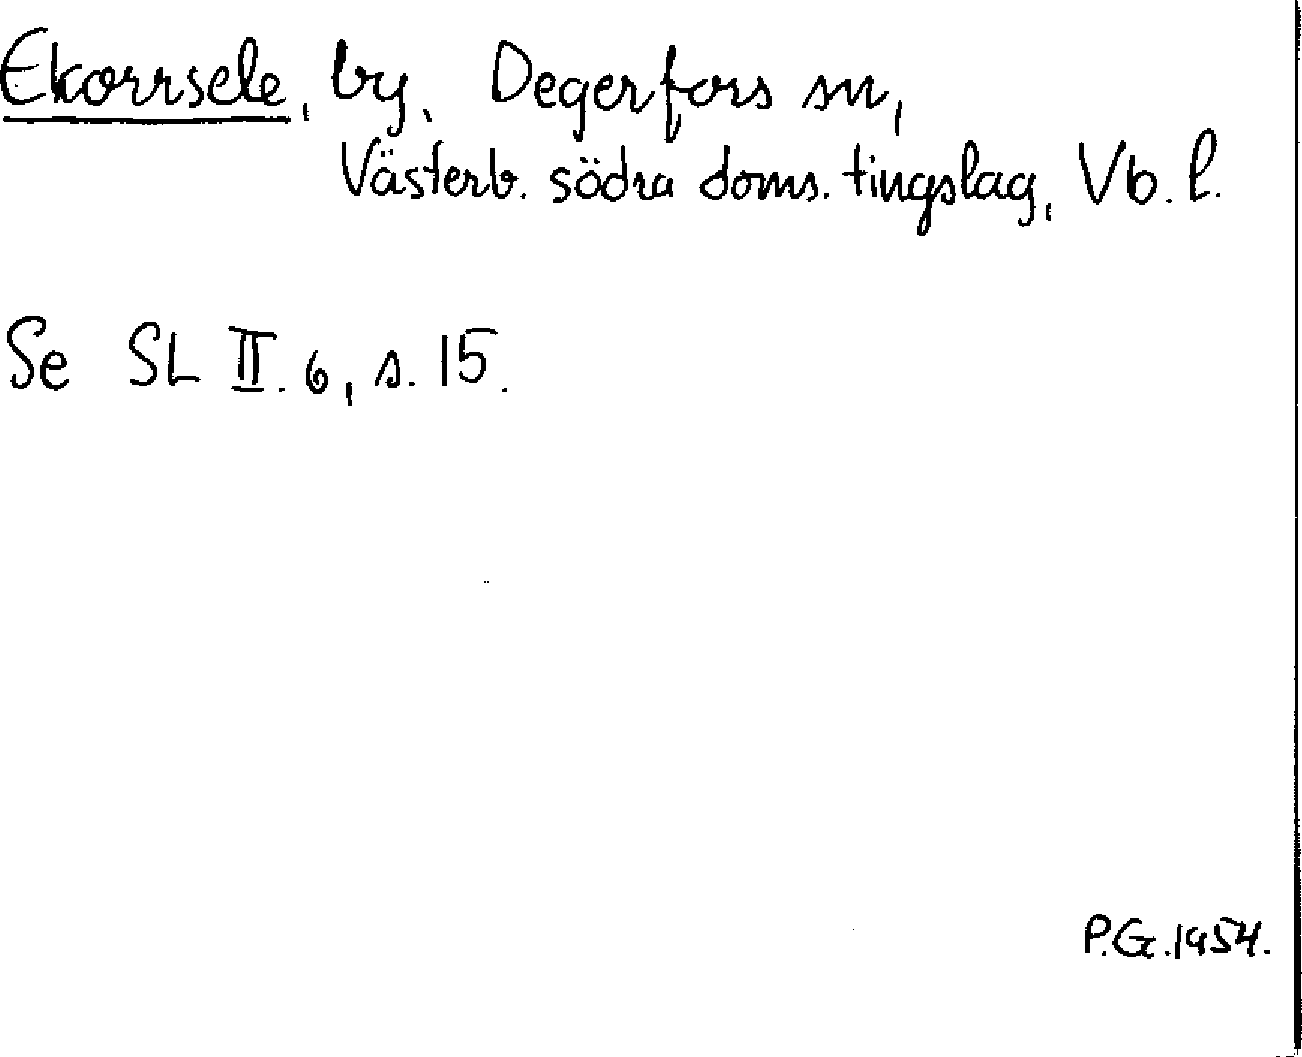 Ekorrsele, by, Degerfors sn,
Västerb. södra doms. tingslag, Vb. l.
Se SL II. 6, s. 15.
P.G. 1954.